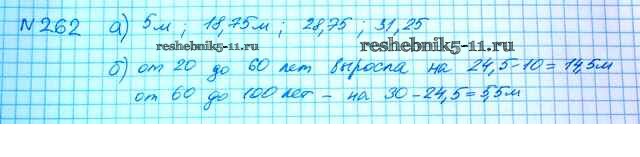 №262 а) 5м ; 18,75м ; 28,75 ; 31,25
reshebnik5-11.ru reshebnik5-11.ru
б) от 20 до 60 лет выросла на 24,5-10 = 14,5м
от 60 до 100 лет – на 30-24,5=5,5м